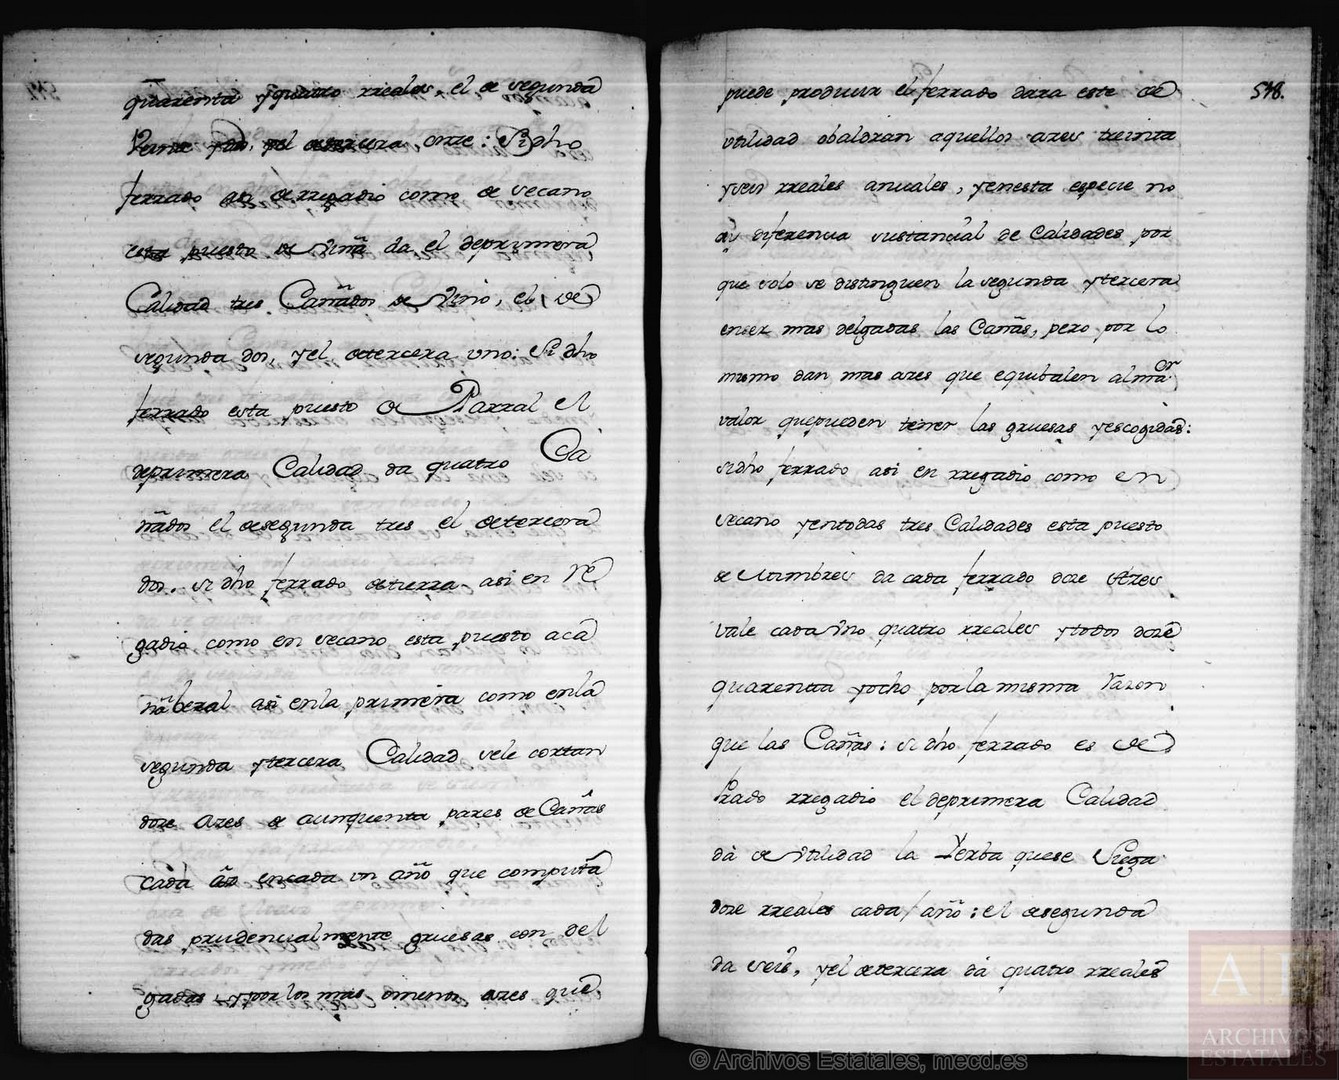 quarenta y quatro rreales, el de segunda
Veinte y dos, y el de tercera onze: Si dho
ferrado asi de rregadio como de secano
esta puesto de Viña da el de primera
Calidad tres Cañados de Vino, el de
segunda dos, y el de tercera uno: Si dho
ferrado esta puesto de Parral el
de primera Calidad da quatro Ca
ñados el de segunda tres el de tercera
dos. si dho ferrado de tierra asi en Re
gadio como en secano esta puesto a ca
ñaberal asi en la primera como en la
segunda y tercera Calidad se le cortan
doze Azes de cinquenta pares de Cañas
cada en cada un año que computa
das prudencialmente gruesas con del
gadas, y por los mas o menos azes que
puede producir el ferrado dara este de
utilidad o baldran aquellos azes treinta
y seis rreales anuales, y en esta especie no
ai diferencia sustancial de Calidades por
que solo se distinguen la segunda y tercera
en ser mas delgadas las Cañas, pero por lo
mismo dan mas azes que equibalen al maor
valor que pueden tener las gruesas y escogidas:
si dho ferrado asi en rregadio como en
secano y en todas tres Calidades esta puesto
de Mimbres da cada ferrado doze Azes
vale cada Uno quatro rreales y todos doze
quarenta y ocho por la misma Razon
que las Cañas: si dho ferrado es de
Prado rregadio el de primera Calidad
dá de Utilidad la Yerba que se Siega
doze rreales cada año: el de segunda
da seis, y el de tercera dá quatro rreales
548.
© Archivos Estatales, mecd.es
AE
ARCHIVOS
ESTATALES